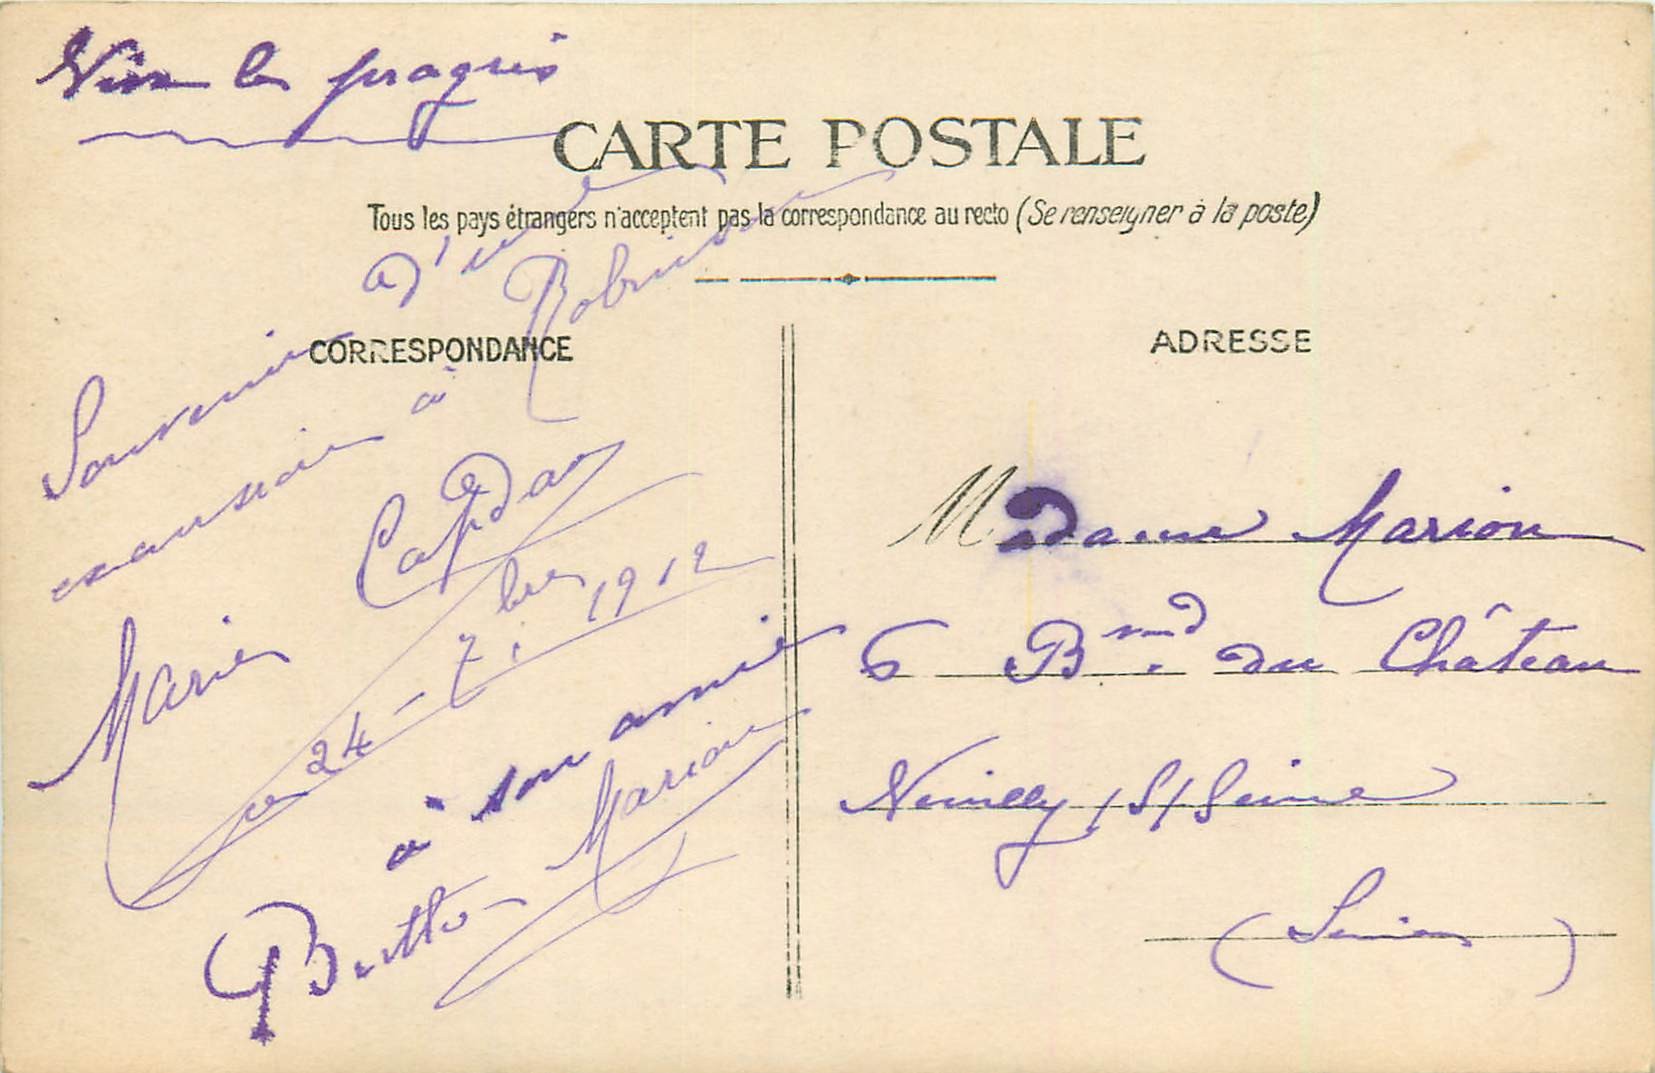 Vive le progrès
CARTE POSTALE
Tous les pays étrangers n'acceptent pas la correspondance au recto (Se renseigner à la poste)
CORRESPONDANCE
Souvenir d'une
excursion à Robinson
Marie Capdau
ce 24 - 7.bre 1912
à son amie
Berthe Marion
ADRESSE
Madame Marion
6 Bard. du Château
Neuilly /S/ Seine
(Seine)